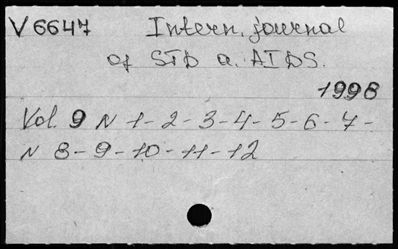 V 6647 Intern. journal
of STD a. AIDS.
1998
Vol. 9 N 1-2-3-4-5-6-7-
N 8-9-10-11-12